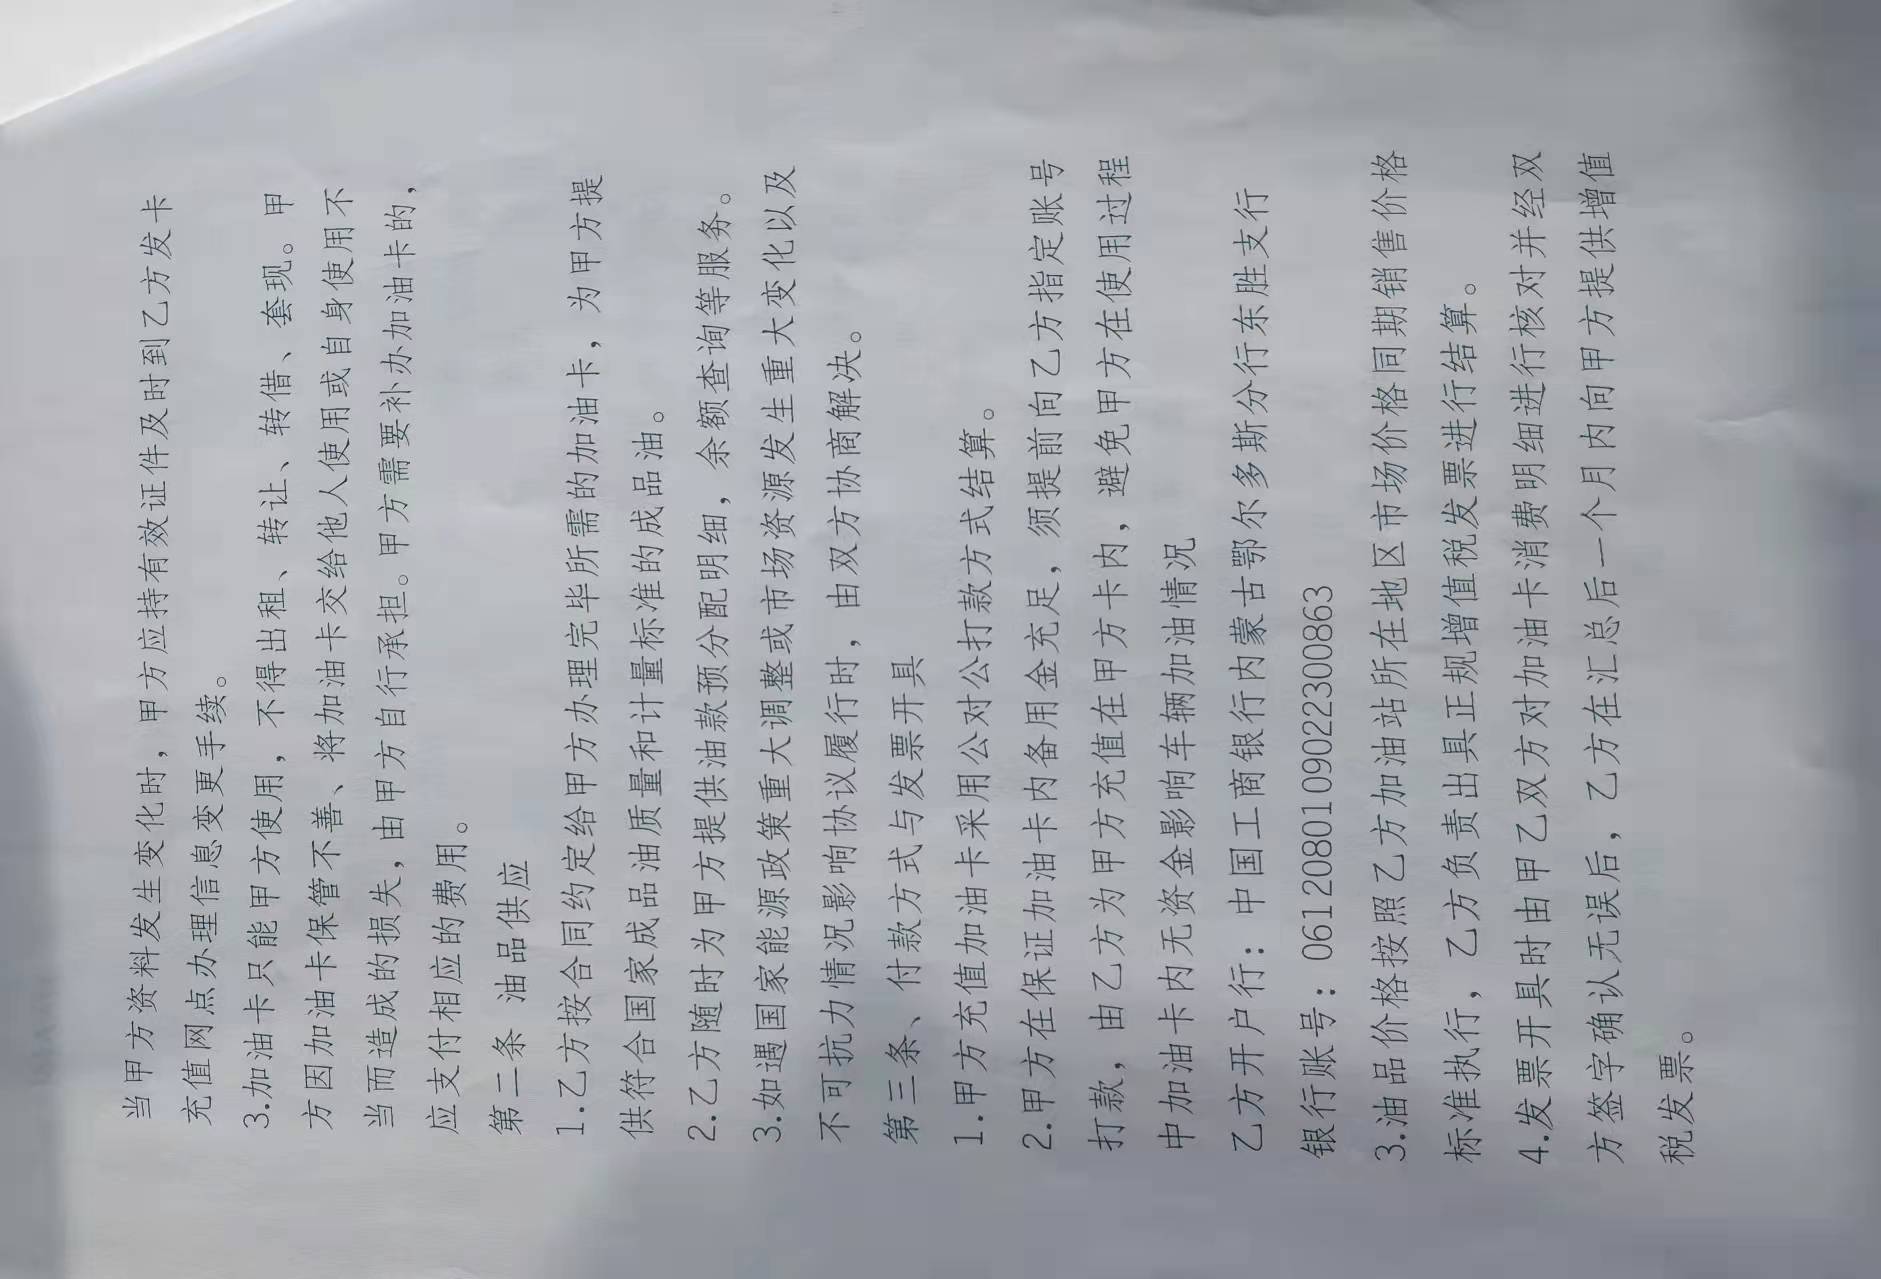 当甲方资料发生变化时，甲方应持有效证件及时到乙方发卡
充值网点办理信息变更手续。
3.加油卡只能甲方使用，不得出租、转让、转借、套现。甲
方因加油卡保管不善、将加油卡交给他人使用或自身使用不
当而造成的损失，由甲方自行承担。甲方需要补办加油卡的，
应支付相应的费用。
第二条 油品供应
1.乙方按合同约定给甲方办理完毕所需的加油卡，为甲方提
供符合国家成品油质量和计量标准的成品油。
2.乙方随时为甲方提供油款预分配明细，余额查询等服务。
3.如遇国家能源政策重大调整或市场资源发生重大变化以及
不可抗力情况影响协议履行时，由双方协商解决。
第三条、付款方式与发票开具
1.甲方充值加油卡采用公对公打款方式结算。
2.甲方在保证加油卡内备用金充足，须提前向乙方指定账号
打款，由乙方为甲方充值在甲方卡内，避免甲方在使用过程
中加油卡内无资金影响车辆加油情况
乙方开户行：中国工商银行内蒙古鄂尔多斯分行东胜支行
银行账号：0612080109022300863
3.油品价格按照乙方加油站所在地区市场价格同期销售价格
标准执行，乙方负责出具正规增值税发票进行结算。
4.发票开具时由甲乙双方对加油卡消费明细进行核对并经双
方签字确认无误后，乙方在汇总后一个月内向甲方提供增值
税发票。